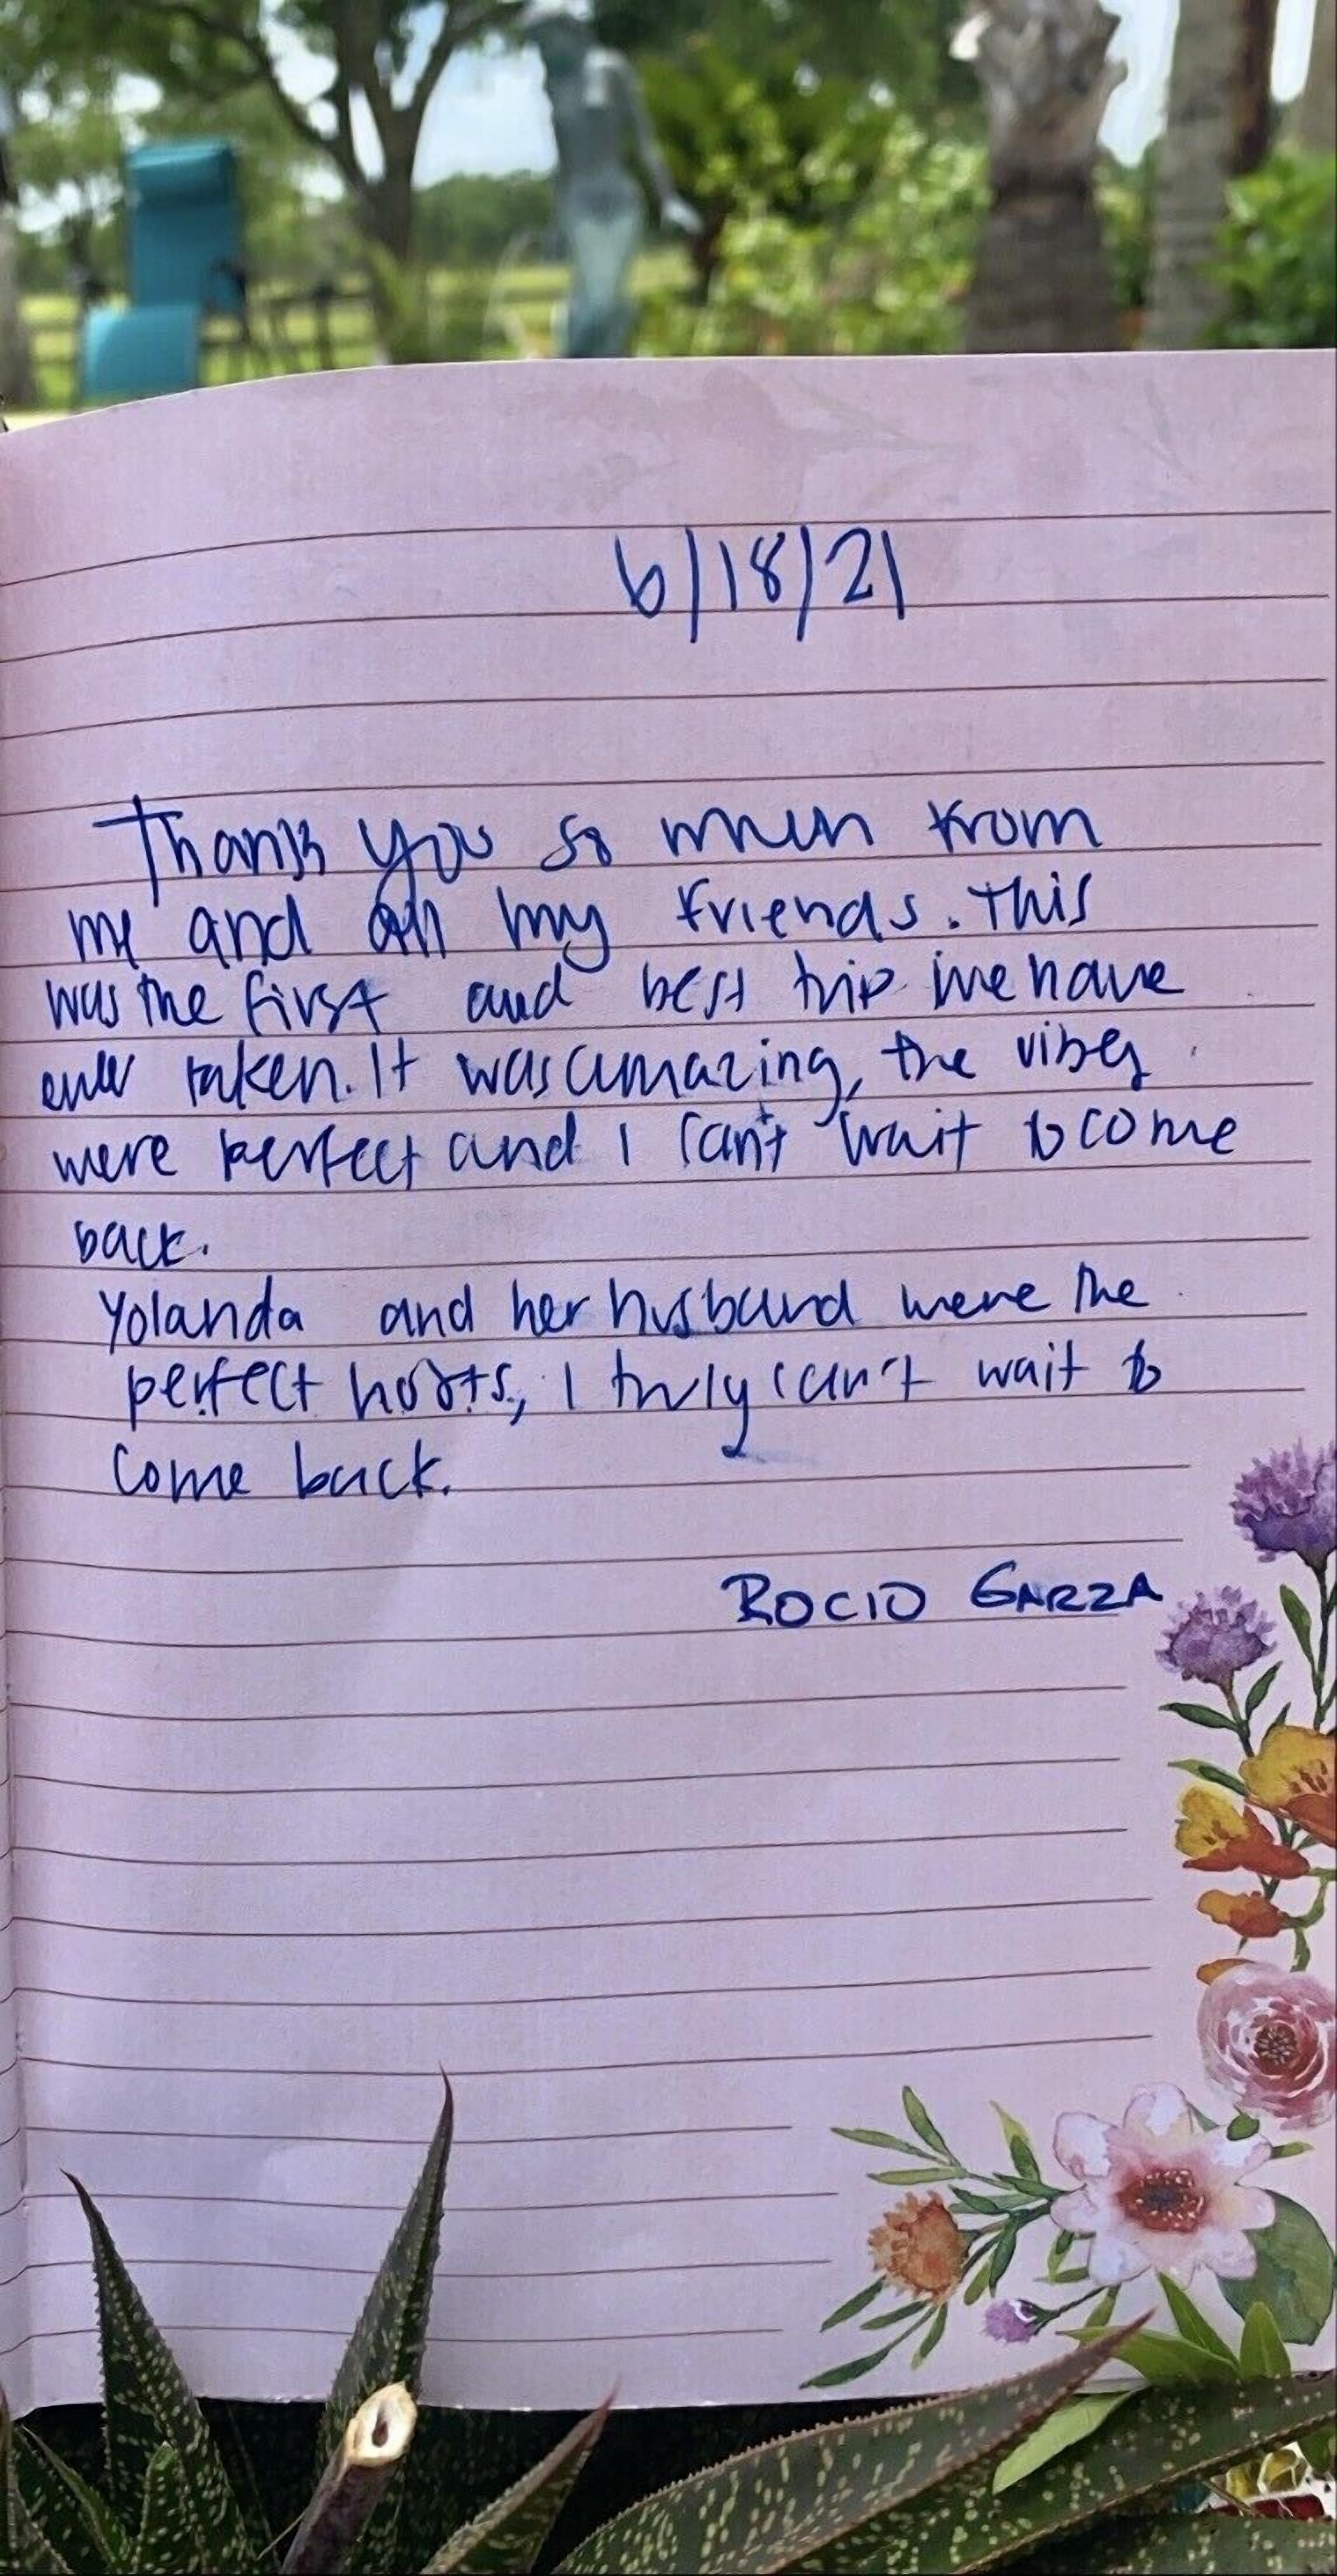 6/18/21
Thank you so much from
me and all my friends. This
was the first and best trip we have
ever taken. It was amazing, the vibes
were perfect and I can't wait to come
back.
Yolanda and her husband were the
perfect hosts, I truly can't wait to
come back.
ROCIO GARZA